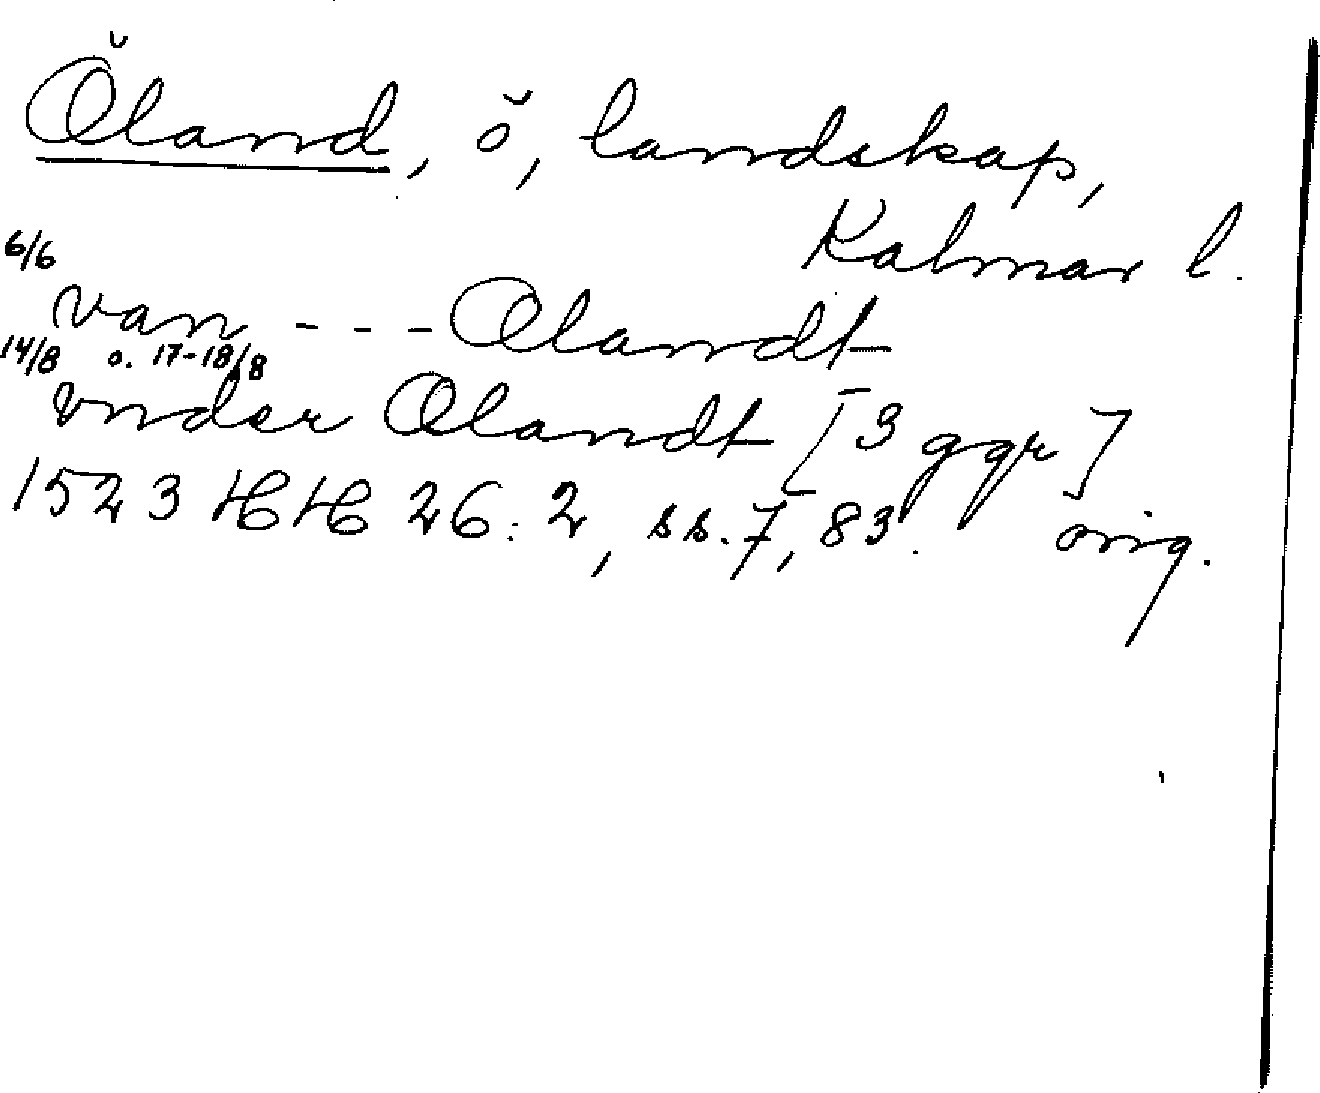 Öland, ö, landskap,
Kalmar l.
6/6
van - - - Olandt
14/8 o. 17-18/8
vnder Olandt [3 ggr]
1523 HH 26:2, ss. 7, 83. orig.